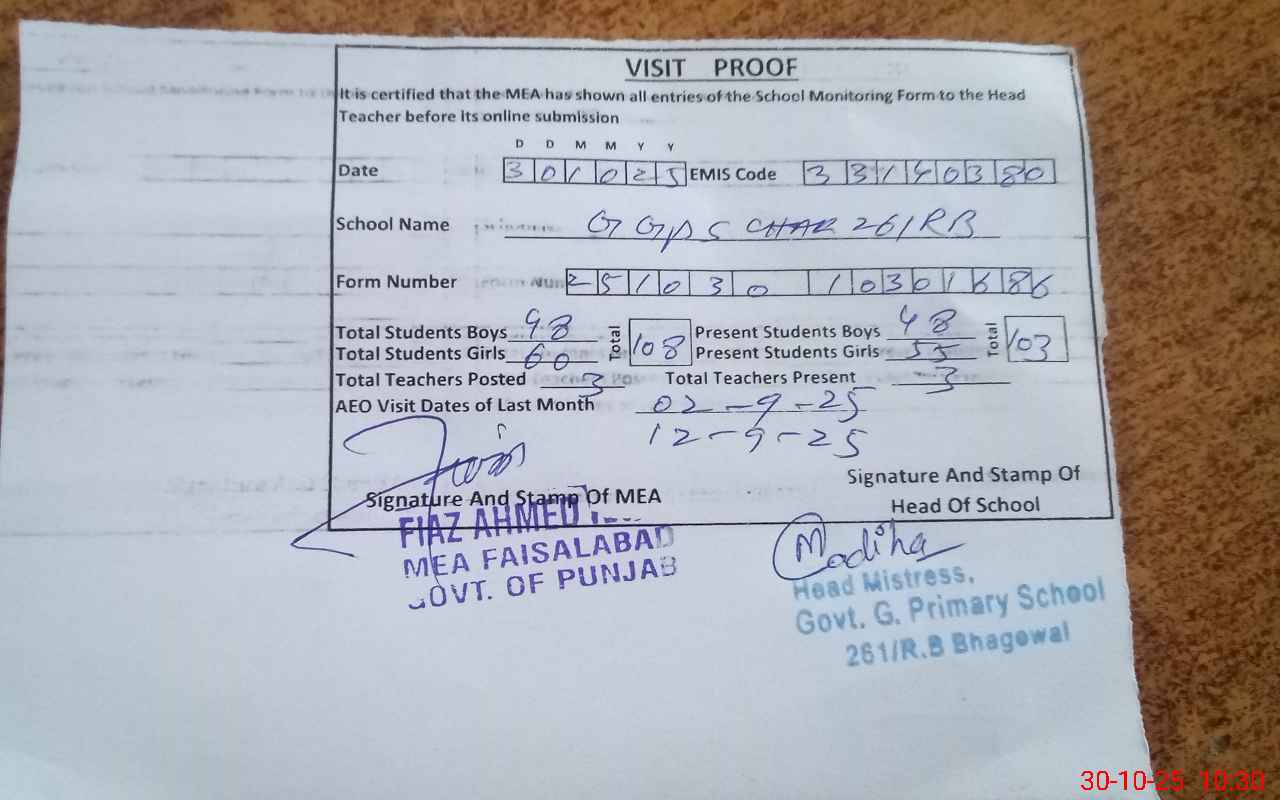 VISIT PROOF
It is certified that the MEA has shown all entries of the School Monitoring Form to the Head
Teacher before its online submission
D D M M Y Y
Date 3 0 1 0 2 5 EMIS Code 3 3 1 4 0 3 8 0
School Name GGPS CHAK 261RB
Form Number 2 5 1 0 3 0 1 0 3 0 1 6 8 6
Total Students Boys 48 Total 108 Present Students Boys 48 Total 103
Total Students Girls 60 Present Students Girls 55
Total Teachers Posted 3 Total Teachers Present 3
AEO Visit Dates of Last Month 02-9-25
12-9-25
Signature And Stamp Of MEA
Signature And Stamp Of
Head Of School
FIAZ AHMED
MEA FAISALABAD
GOVT. OF PUNJAB
Madiha
Head Mistress,
Govt. G. Primary School
261/R.B Bhagowal
30-10-25 10:30